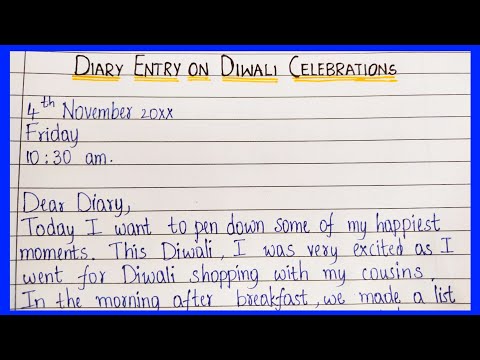 DIARY ENTRY ON DIWALI CELEBRATIONS
4th November 20xx
Friday
10:30 am.
Dear Diary,
Today I want to pen down some of my happiest
moments. This Diwali, I was very excited as I
went for Diwali shopping with my cousins.
In the morning after breakfast, we made a list